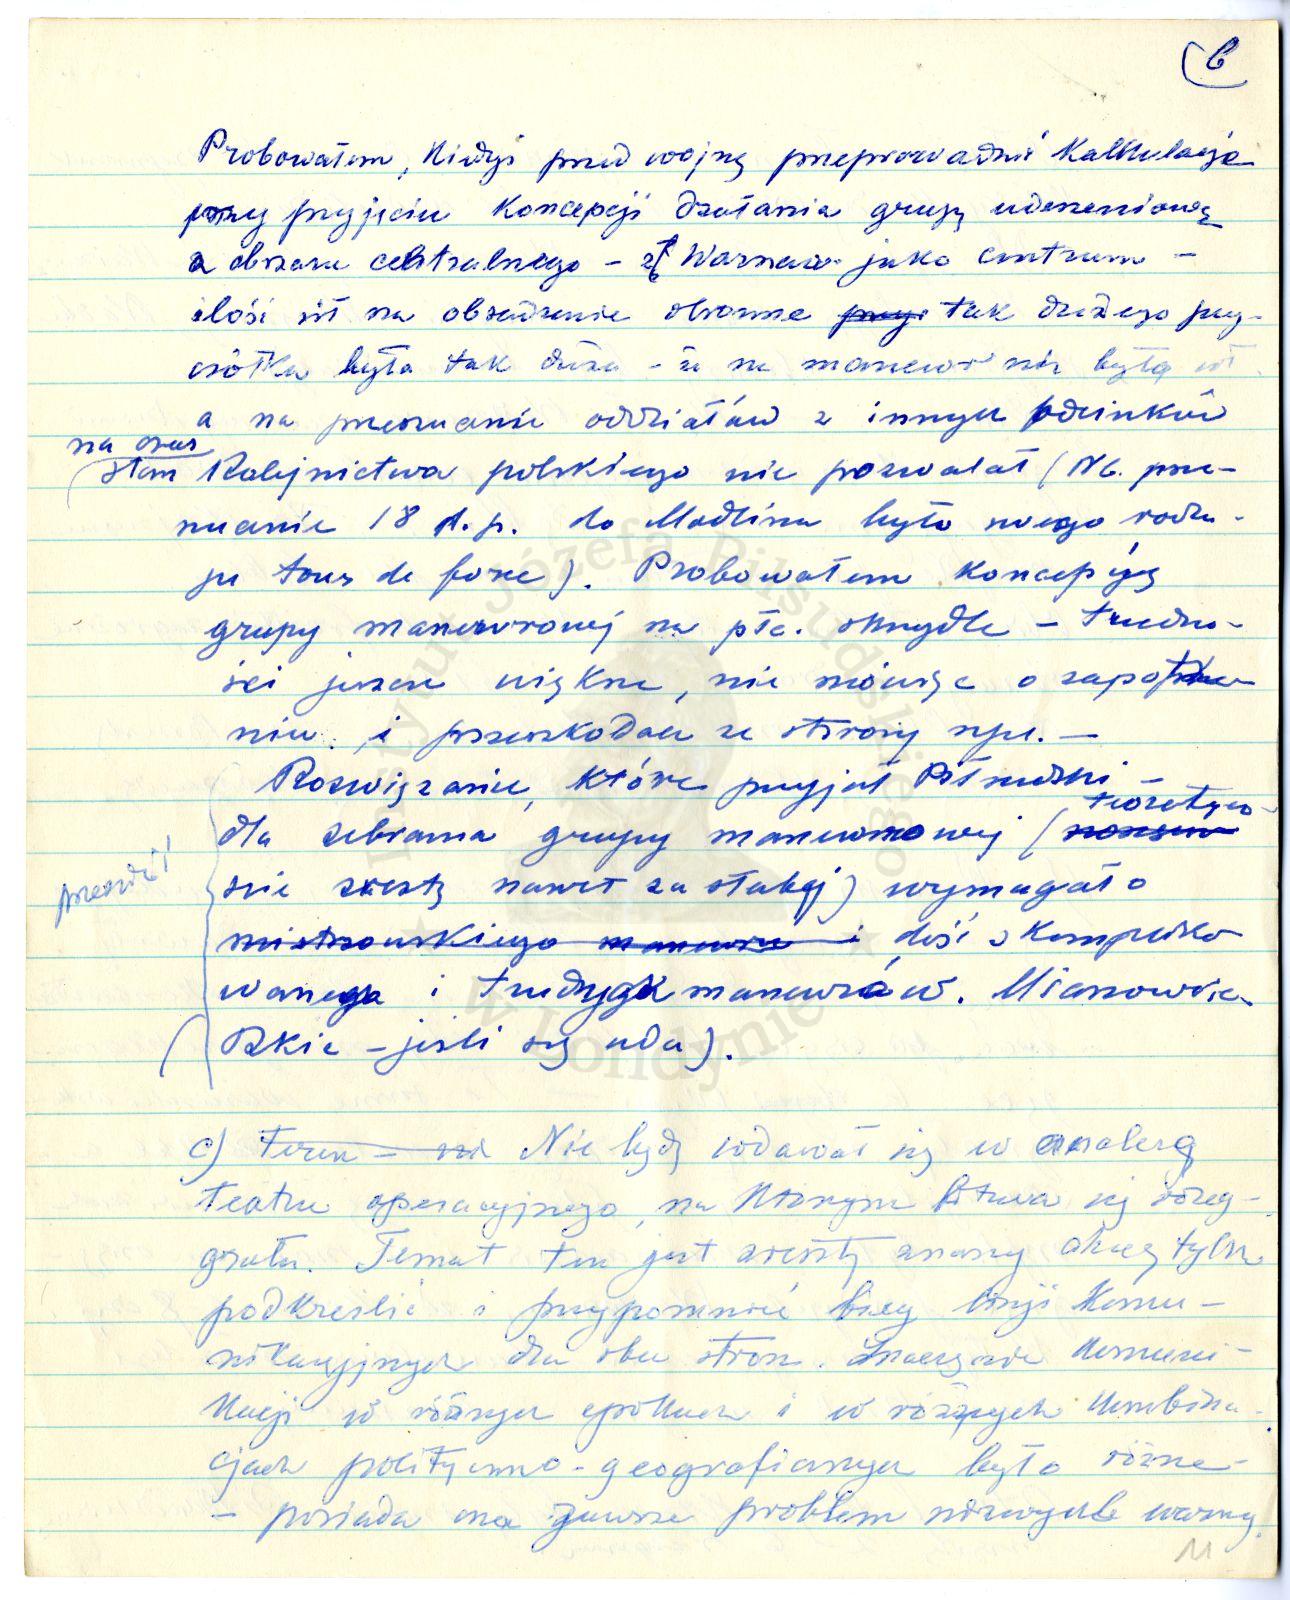 6
Probowałem, kiedyś przed wojną przeprowadzić kalkulację
przy przyjęciu koncepcji działania grupą uderzeniową
z obszaru centralnego – Warszawa jako centrum –
ilość sił na obsadzenie obronne przy tak dużego przy-
czółka była tak duża – że na manewr nie było sił
a na przesunięcie oddziałów z innych odcinków
na czas
stan Kolejnictwa polskiego nie pozwalał (NB. prze-
sunięcie 18 d.p. do Modlina było swego rodza-
ju tour de force). Probowałem koncepcję
grupy manewrowej na płc. skrzydle – trudno-
ści jeszcze większe, nie mówiąc o
niu i przeszkodach ze strony npl. –
Rozwiązanie, które przyjął Piłsudski –
teoretycz-
dla zebrania grupy manewrowej (
nie zresztą nawet za słabej) wymagało
przejść
mistrzowskiego manewru i dość skompliko
wanego i trudnych manewrów. Mianowicie
Rzkie – jeśli się uda).
c) Teren – Nie będę wdawał się w analizę
teatru operacyjnego, na którym bitwa się roze-
grała. Temat ten jest zresztą znany chcę tylko
podkreślić i przypomnieć bieg linji komu-
nikacyjnych dla obu stron. Znaczenie komuni-
kacji w różnych epokach i w różnych kombina-
cjach polityczno-geograficznych było różne –
– posiada ona zawsze problem niezwykle ważny.
11
Instytut Józefa Piłsudskiego
w Londynie